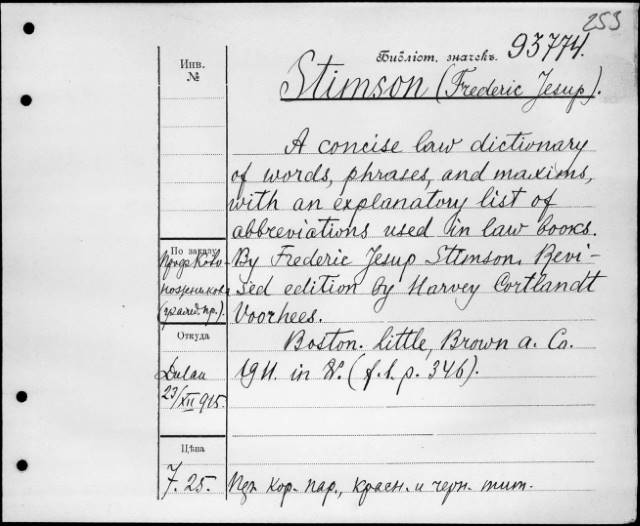 253
Библіот. значекъ. 93774.
Инв.
№
Stimson (Frederic Jesup).
A concise law dictionary
of words, phrases, and maxims,
with an explanatory list of
abbreviations used in law books.
По заказу
Проф.
(гражд. пр.).
By Frederic Jesup Stimson. Revi-
sed edition by Harvey Cortlandt
Voorhees.
Откуда
Boston. Little, Brown a. Co.
Dulau
23/XII 915.
1911. in 8°. (f. l. p. 346).
Цѣна
7.25.
кор. пар., красн. и черн. тит.